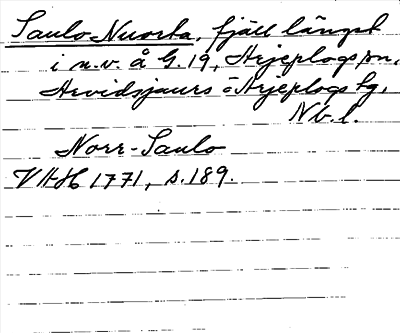 Saulo Nuorta, fjäll längst
i n.v. å G.19, Arjeplogs sn,
Arvidsjaurs o Arjeplogs tg,
Nb.l.
Norr-Saulo
VHH 1771, s.189.